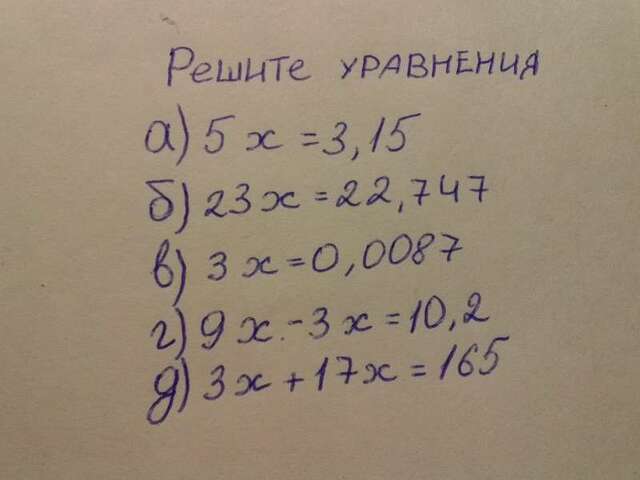 Решите уравнения
а) 5x = 3,15
б) 23x = 22,747
в) 3x = 0,0087
г) 9x - 3x = 10,2
д) 3x + 17x = 165